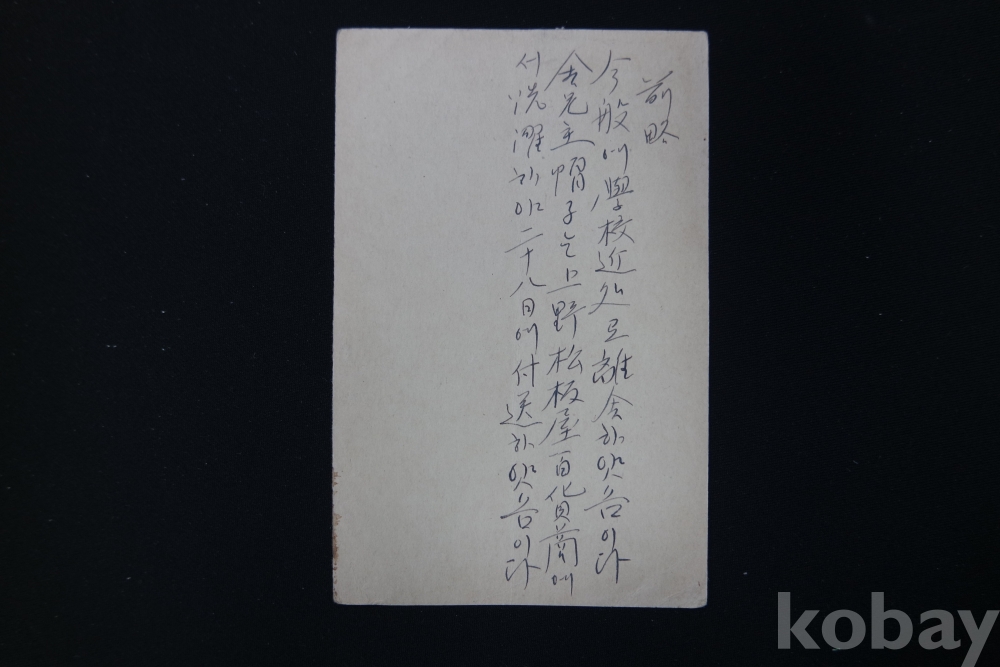 前略
今般에 學校近処로 離舍하얏슴이다
舍兄主帽子는 上野松板屋百貨商에
서 洗濯하야 二十八日에 付送하얏슴이다
kobay